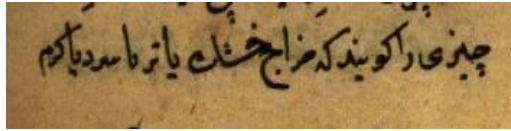 چیزی را کویند که مزاج خشک یا تر یا سرد یا کرم